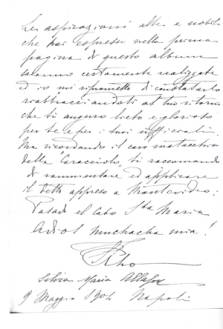 Le aspirazioni alte e nobili
che hai espresso nella prima
pagina di questo album
saranno certamente realizzate
ed io mi riprometto di constatarlo
riabbracciandoti al tuo ritorno
che ti auguro lieto e glorioso
per te e per i tuoi
Ma ricordando il caro
della Caracciolo, ti raccomando
di rammentare ed applicare
il detto appreso a Montevideo:
Pasado el Cabo Sta Maria
Adios muchacha mia!
9 Maggio 1904 Napoli